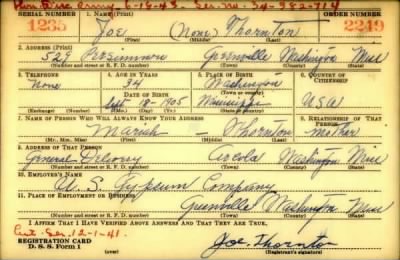 Army 6-16-43. Ser. No. 34-982-714
SERIAL NUMBER 1. NAME (Print) ORDER NUMBER
1235 Joe (None) Thornton 2249
(First) (Middle) (Last)
2. ADDRESS (Print)
529 Persimmon Greenville Washington Miss
(Number and street or R. F. D. number) (Town) (County) (State)
3. TELEPHONE 4. AGE IN YEARS 5. PLACE OF BIRTH 6. COUNTRY OF CITIZENSHIP
None 34 Washington
DATE OF BIRTH (Town or county)
Sept 18 - 1905 Mississippi USA
(Exchange) (Number) (Mo.) (Day) (Yr.) (State or country)
7. NAME OF PERSON WHO WILL ALWAYS KNOW YOUR ADDRESS 8. RELATIONSHIP OF THAT PERSON
Mariah - Thornton Mother
(Mr., Mrs., Miss) (First) (Middle) (Last)
9. ADDRESS OF THAT PERSON
General Delivery Arcola Washington Miss
(Number and street or R. F. D. number) (Town) (County) (State)
10. EMPLOYER'S NAME
U. S. Gypsum Company
11. PLACE OF EMPLOYMENT OR BUSINESS
Greenville Washington Miss
(Number and street or R. F. D. number) (Town) (County) (State)
I AFFIRM THAT I HAVE VERIFIED ABOVE ANSWERS AND THAT THEY ARE TRUE.
Ser. 12-1-41.
REGISTRATION CARD
D. S. S. Form 1
Joe. Thornton
(Registrant's signature)